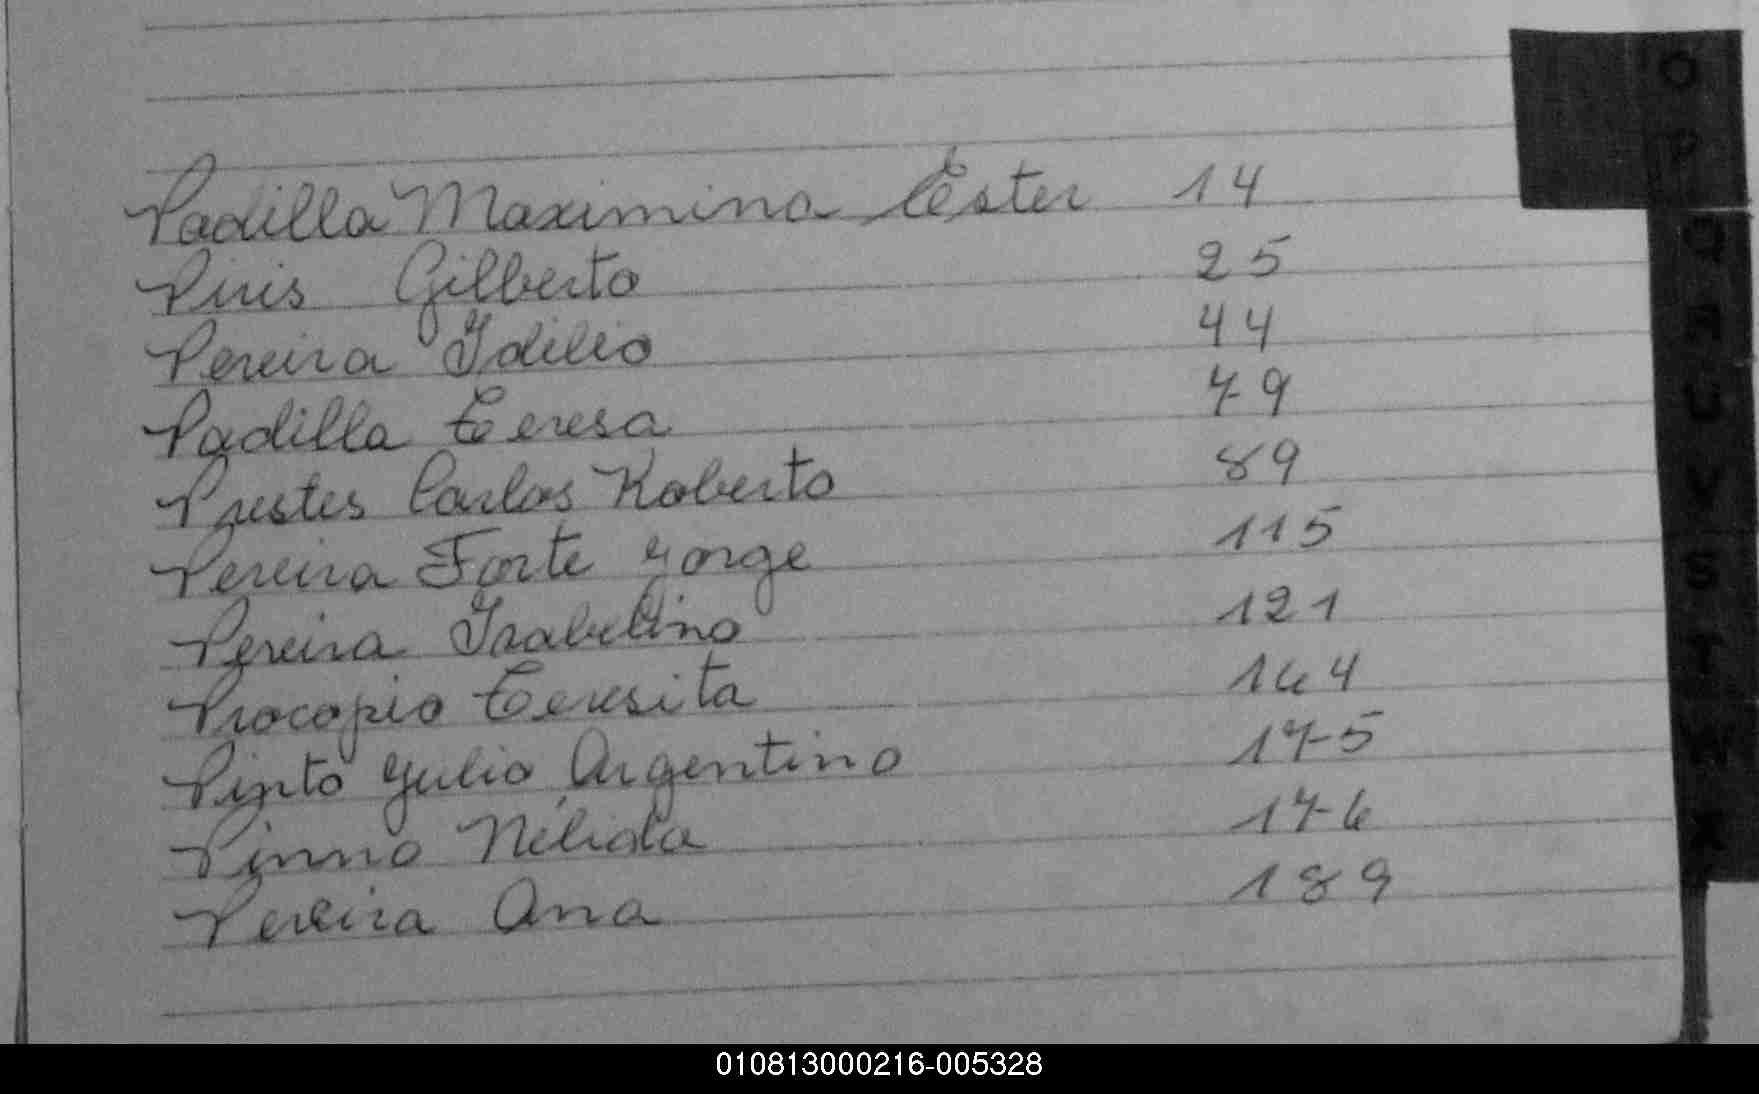 Padilla Maximina Ester 14
Piris Gilberto 25
Pereira Idilio 44
Padilla Teresa 79
Prestes Carlos Roberto 89
Pereira Forte Jorge 115
Pereira Isabelino 121
Procopio Teresita 164
Pinto Julio Argentino 175
Pinno Nélida 176
Pereira Ana 189
O
P
Q
R
U
V
S
T
W
X
010813000216-005328